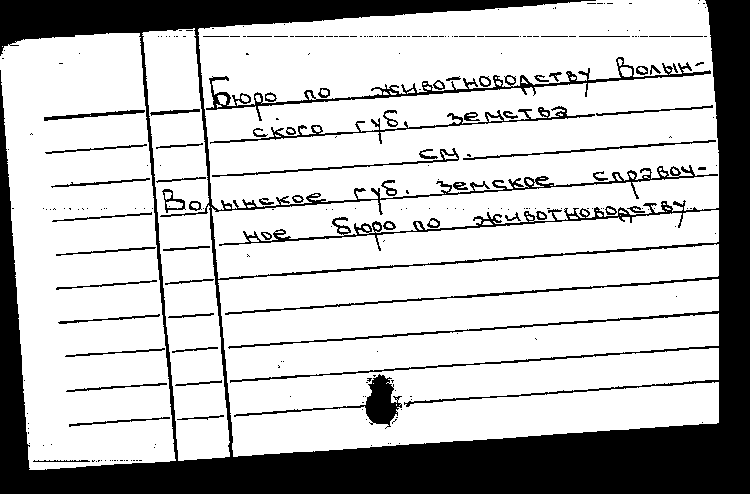 Бюро по животноводству Волын-
ского губ. земства
см.
Волынское губ. земское справоч-
ное бюро по животноводству.